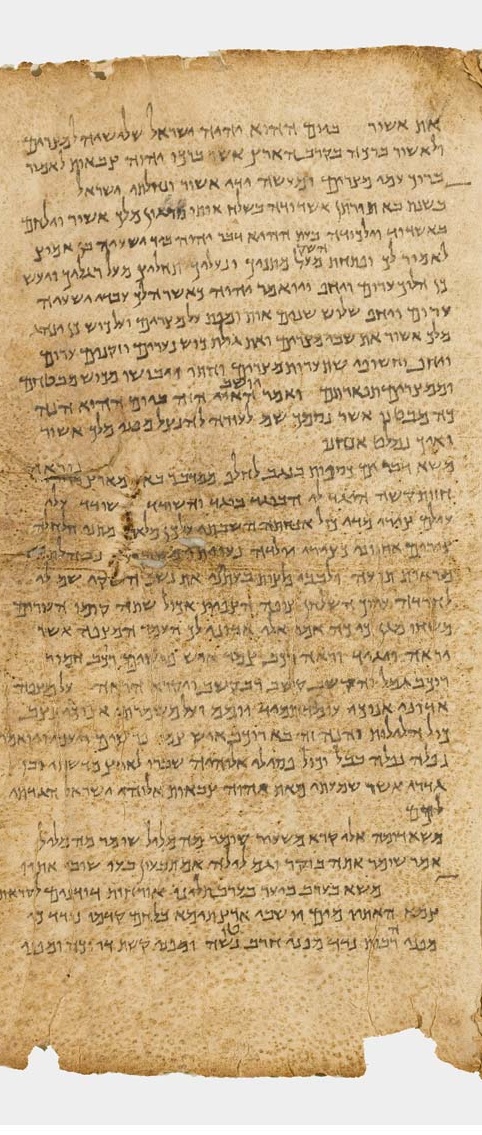 את אשור ביום ההוא יהיה ישראל שלישיה למצרים
ולאשור ברכה בקרב הארץ אשר ברכו יהוה צבאות לאמור
ברוך עמי מצרים ומעשה ידי אשור ונחלתי ישראל
בשנת בא תורתן אשדודה בשלח אותו מלך אשור וילחם
באשדוד וילכודה בעת ההיא דבר יהוה ביד ישעיהו בן אמוץ
לאמור לך ופתחת השק מעל מתניך ונעליך תחליץ מעל רגליך ויעש
כן הלוך ערום ויחף ויואמר יהוה כאשר הלך עבדי ישעיה
ערום ויחף שלוש שנים אות ומופת על מצרים ועל כוש כן ינהג
מלך אשור את שבי מצרים ואת גלות כוש נערים וזקנים ערום
ויחף וחשופי שת ערות מצרים וחתו ובושו מכוש מבטחם
וממצרים תפארתם ואמר יושב האי הזה ביום ההוא הנה
כה מבטנו אשר נסמך שם לעזרה להנצל מפני מלך אשור
ואיך נמלט אנחנו
משא דבר ים בנגב לחלוף ממדבר בא מארץ
חזות קשה לי הבוגד בוגד והשודד שודד עלי
עילם צורי מדי כול אנחתה השבתי על כן מלאו מתני חלחלה
צירים אחזוני כצירי יולדה נעויתי
תועה ולבבי בעתתני את נשף שם לי
לחרדה ערוך השלחן צפה הצפית אכול שתה קומו השרים
משחו מגן כי כה אמר אלי אדוני לך העמד המצפה אשר
יראה ויגיד וראה רכב צמד איש פרשים רכב חמור
רוכב גמל והקשיב קשב רב קשב ויקרא הראה על מצפה
אדוני אנוכי עומד תמיד יומם ועל משמרתי אנוכי נצב
כול הלילות והנה זה בא רוכב איש צמד פרשים ויען ויואמר
נפלה נפלה בבל וכול פסילי אלוהיה שברו לארץ
גדרי אשר שמעתי מאת יהוה צבאות אלוהי ישראל הגדתי
לכם
משא דומה אלי קרא משעיר שומר מה מליל שומר מה מליל
אמר שומר אתה בוקר וגם לילה אם תבעון בעו שובו אתיו
משא בערב ביער בערב תלינו אורחות דודנים לקראת
צמא האתיו מים ישבי ארץ תימא בלחם קדמו נודד כי
מפני רבות נדד מפני חרב נטושה ומפני קשת דרוכה ומפני